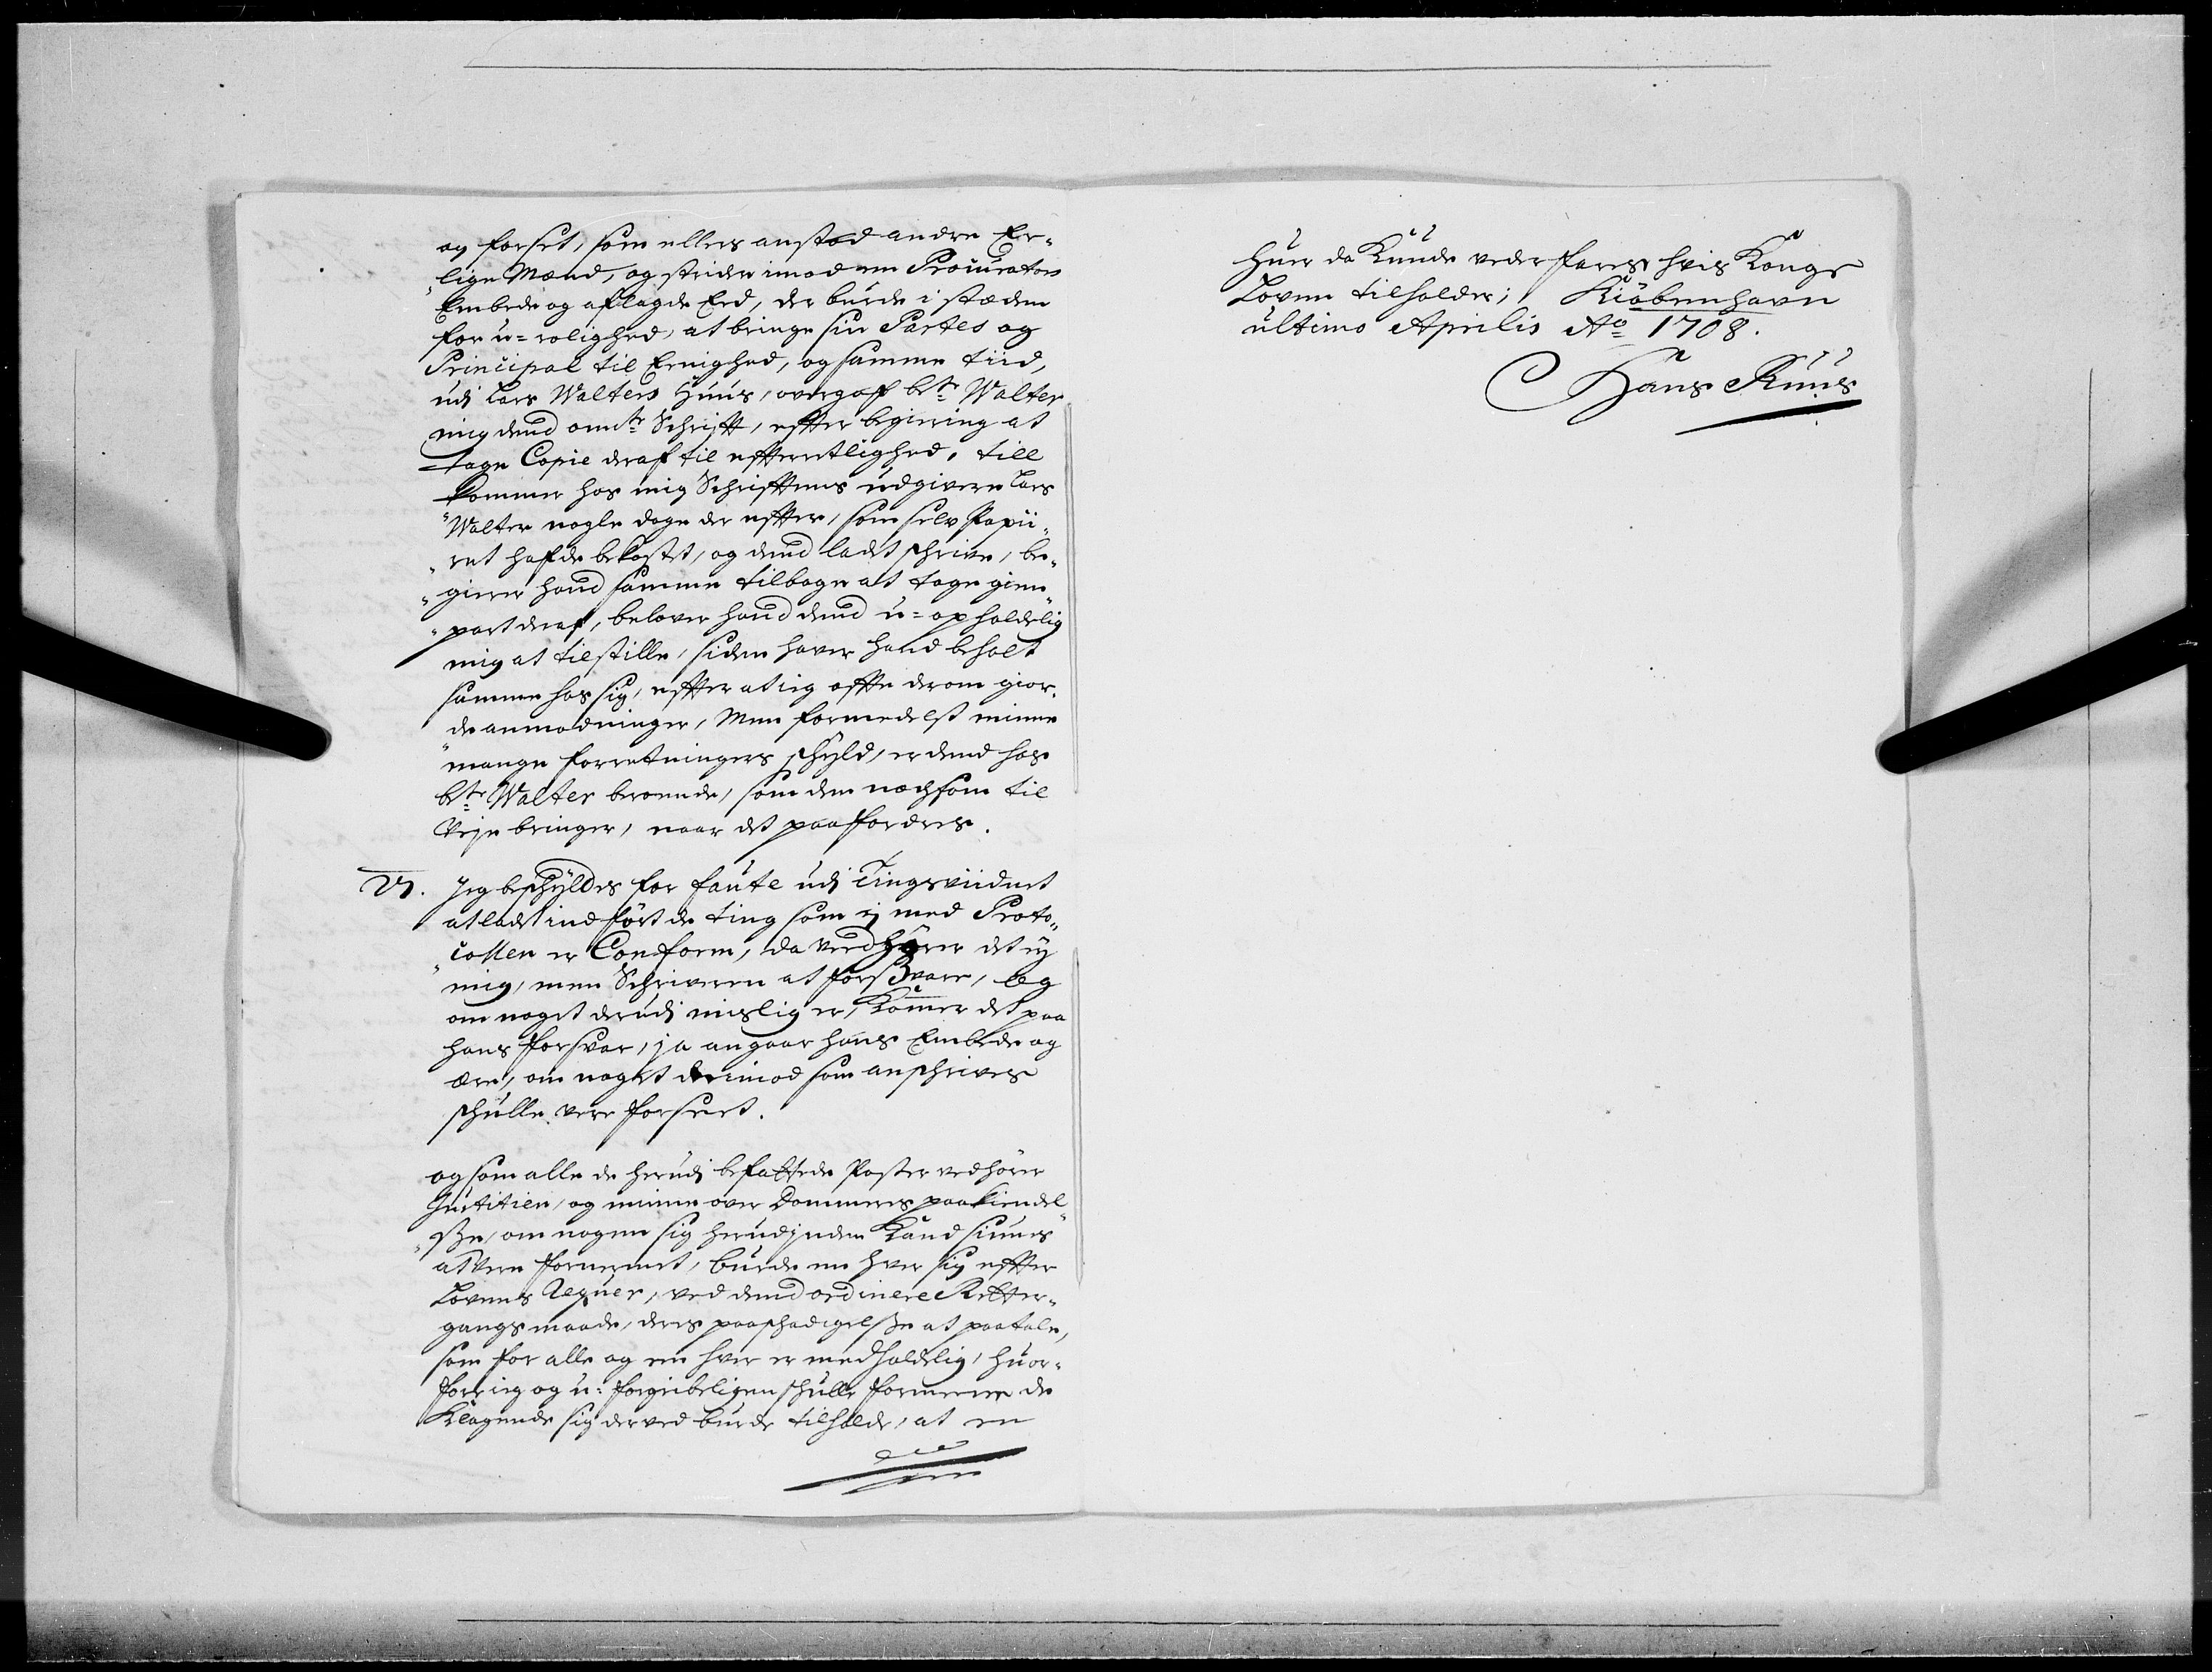 og forset, som ellers anstod andre Er-
"lige Mænd, og strider imod em Procurators
Embede og aflagde Eed, der burde i stæden
for u=rolighed, at bringe sin Partes og
Principal til Eenighed, og samme tiid,
udi Lars Walters Huus, overgaf bte Walter
mig dend omte Schrifft, effter begiering at
tage Copie deraf til effterretlighed. till
kommer hos mig Schrifftens udgivere Lars
"Walter nogle dage der effter, som selv Papii-
"ret hafde bekostet, og dend ladet schrive, be-
"gierer hand samme tilbage at tage gien-
"part deraf, belover hand dend u=opholdelig
mig at tilstille, siden haver hand beholt
samme hos sig, effter at ieg offte derom gior-
de anmodninger, Men formedelst minne
"mange forretningers schyld, er dend hos
bte Walter beroende, som den nochsom til
Veje bringer, naar det paafordres.
VI. Jeg beschyldes for faute udi Tingsviidnet
at ladet indført de ting som ej med Proto-
"collen er Conform, da vedhører det ej
mig, men Schriveren at forsvare, og
om noget derudi mislig er, Kommer det paa
hans forsvar, ja angaar hans Embede og
ære, om noget derimod som anschrives
schulle være forseet.
og som alle de herudi befattede Poster vedhører
Justitien, og minne over Dommeres paakiendel-
"sse, om nogen sig herudjnden Kand siunes
at være fornermet, burde en hver sig effter
Lovens Regner, ved dend ordinere Retter-
gangs maade, deris paaschadigelsse at paatale,
som for alle og en hver er medholdelig, huor-
for ieg og u=forgribeligen schulle formeene de
Klagende sig derved burde tilholde, at en
huer da Kunde vederfares hvis Konge
Loven tilholder; Kiøbenhavn
ultimo Aprilis Ao 1708.
Hans Kuus